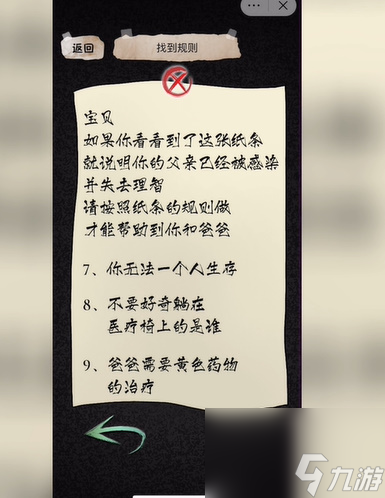 返回
找到规则
宝贝
如果你看看到了这张纸条
就说明你的父亲已经被感染
并失去理智
请按照纸条的规则做
才能帮助到你和爸爸
7、你无法一个人生存
8、不要好奇躺在
医疗椅上的是谁
9、爸爸需要黄色药物
的治疗
九游